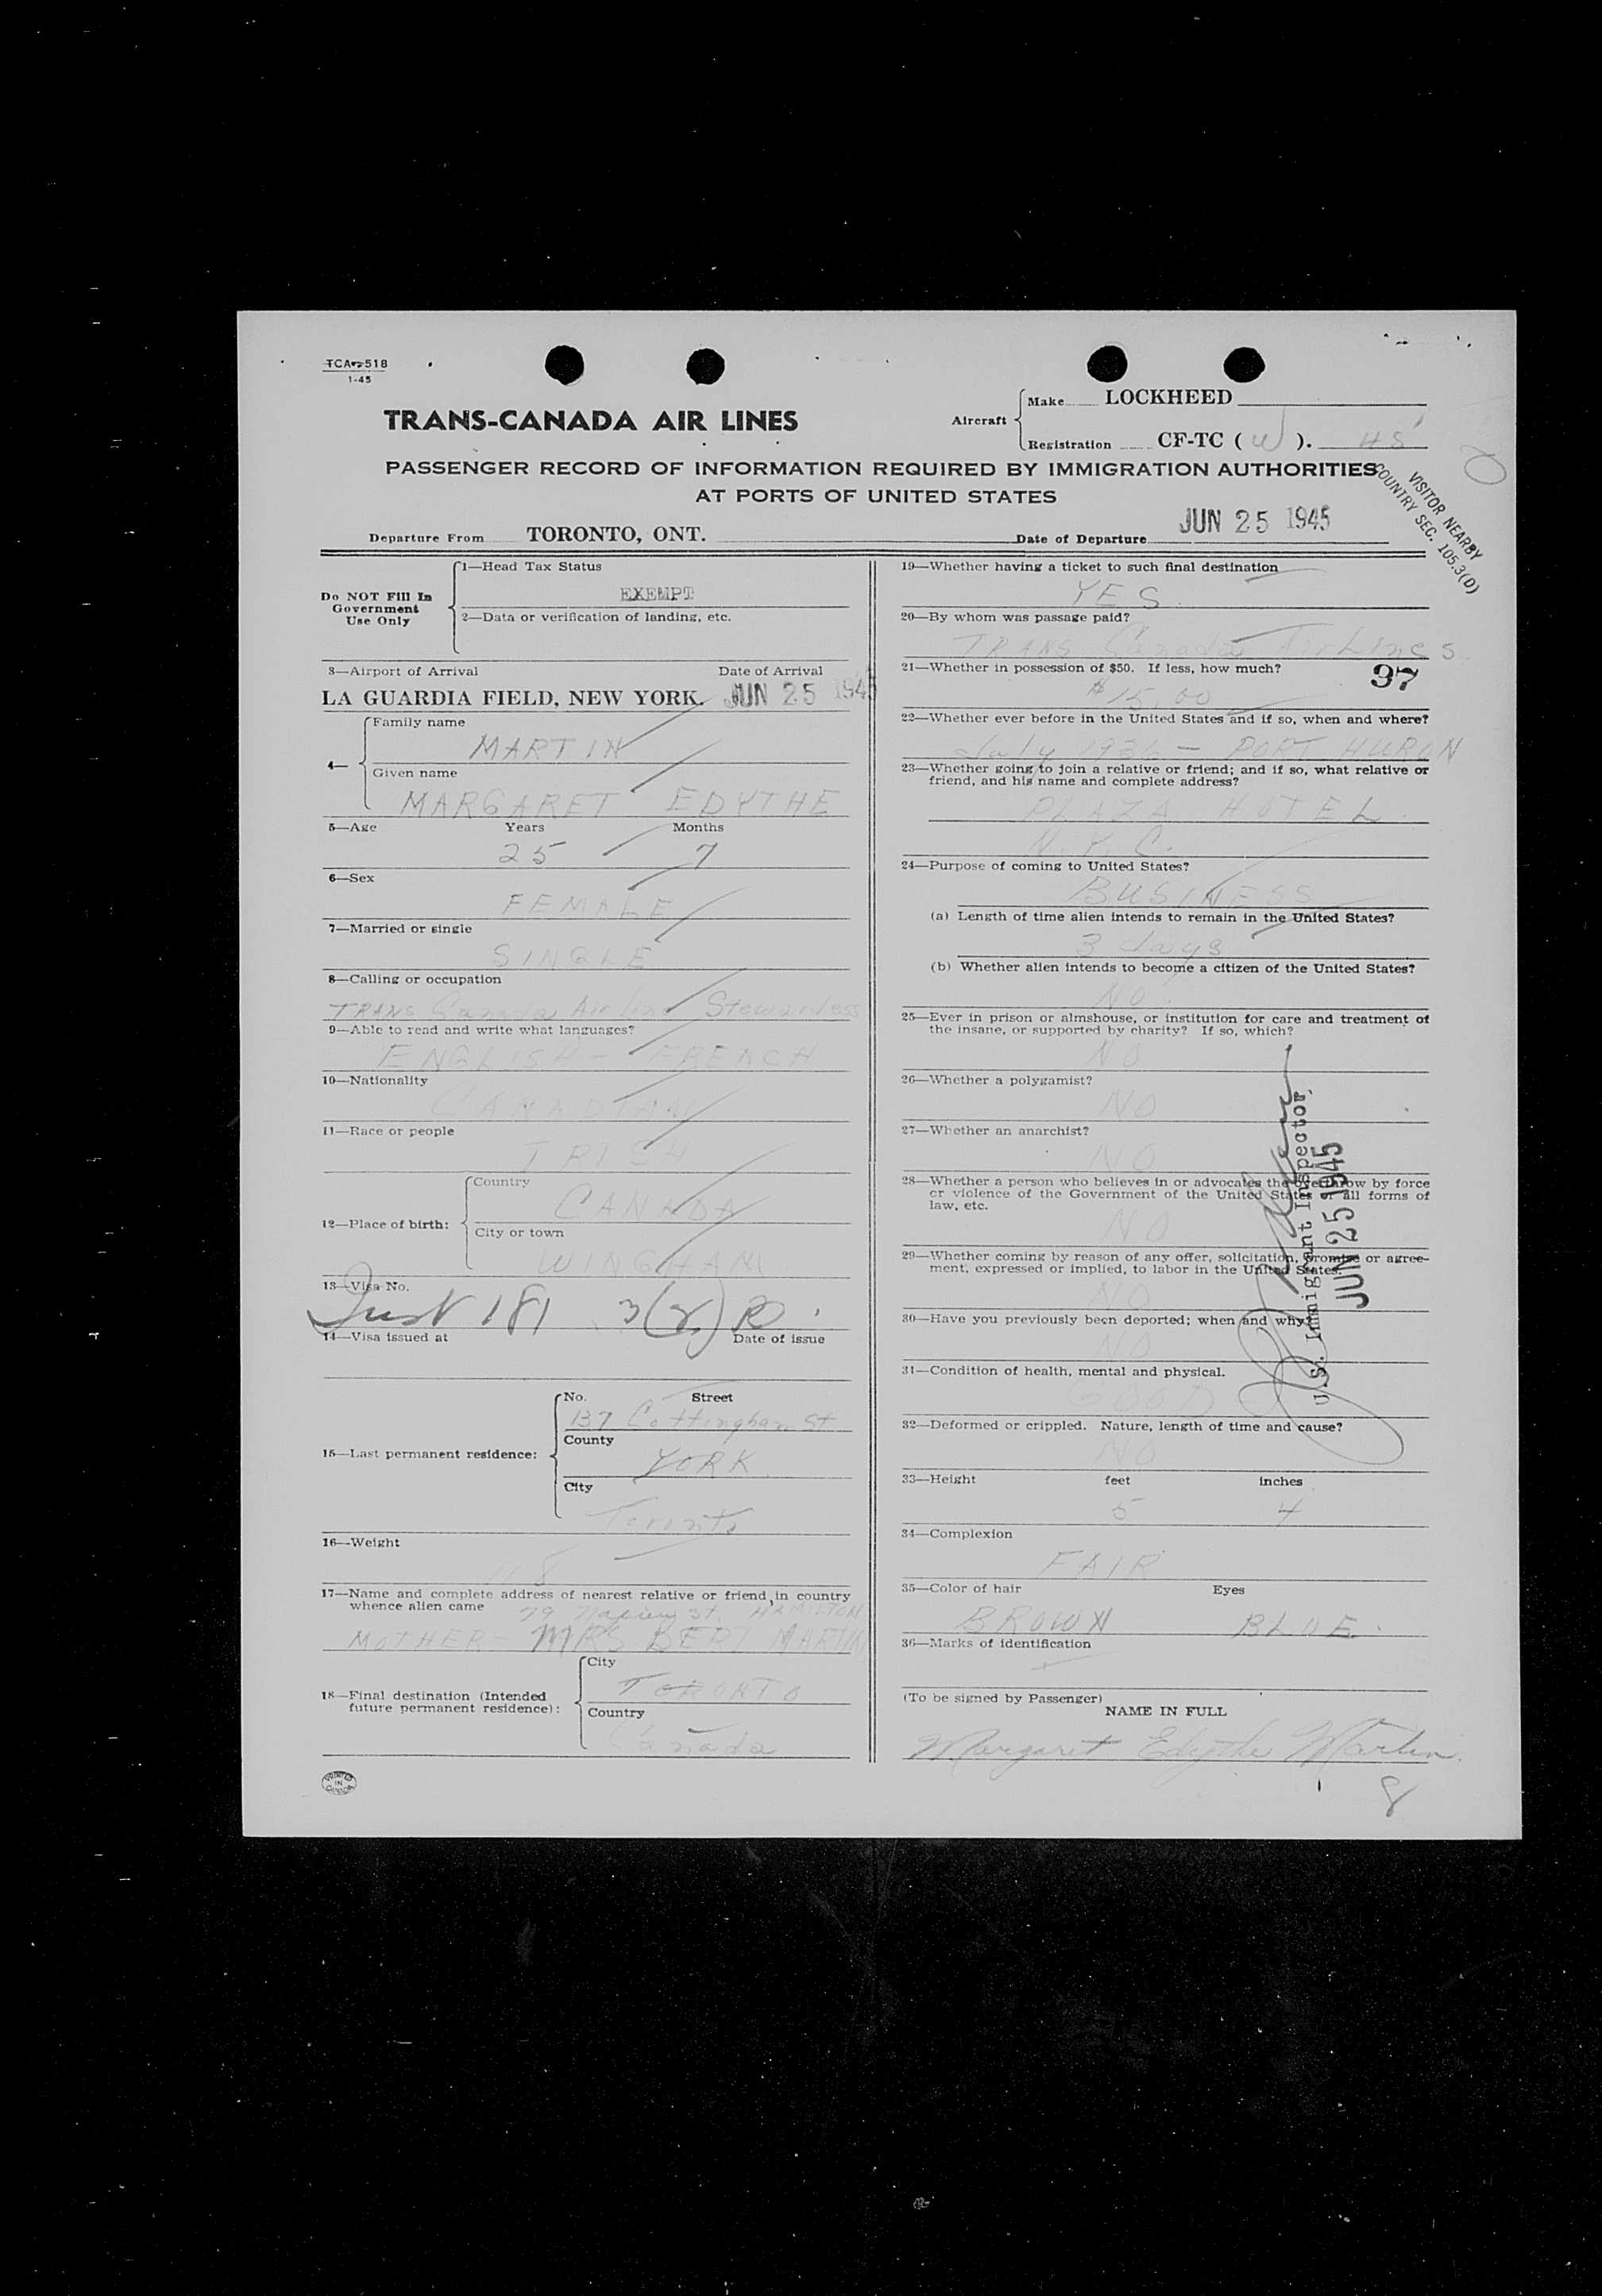 TCA-518
1-45
TRANS-CANADA AIR LINES
Aircraft
Make LOCKHEED
Registration CF-TC ( W ). 45
PASSENGER RECORD OF INFORMATION REQUIRED BY IMMIGRATION AUTHORITIES
AT PORTS OF UNITED STATES
VISITOR NEARBY
COUNTRY SEC. 105.3(D)
Departure From TORONTO, ONT. Date of Departure JUN 25 1945
Do NOT Fill In
Government
Use Only
1—Head Tax Status
EXEMPT
2—Data or verification of landing, etc.
3—Airport of Arrival Date of Arrival
LA GUARDIA FIELD, NEW YORK. JUN 25 1945
4—
Family name
MARTIN
Given name
MARGARET EDYTHE
5—Age Years Months
25 7
6—Sex
FEMALE
7—Married or single
SINGLE
8—Calling or occupation
TRANS Canada Air Line Stewardess
9—Able to read and write what languages?
ENGLISH - FRENCH
10—Nationality
CANADIAN
11—Race or people
IRISH
12—Place of birth:
Country
CANADA
City or town
WINGHAM
13—Visa No.
181 3(2) R
14—Visa issued at Date of issue
15—Last permanent residence:
No. Street
137 Cottingham St
County
YORK
City
Toronto
16—Weight
118
17—Name and complete address of nearest relative or friend in country
whence alien came 79 Napier St. HAMILTON
MOTHER - MRS BERT MARTIN
18—Final destination (Intended
future permanent residence):
City
TORONTO
Country
Canada
PRINTED
IN
CANADA
19—Whether having a ticket to such final destination
YES
20—By whom was passage paid?
TRANS Canada AirLines
21—Whether in possession of $50. If less, how much?
$15.00
37
22—Whether ever before in the United States and if so, when and where?
July 1936 - PORT HURON
23—Whether going to join a relative or friend; and if so, what relative or
friend, and his name and complete address?
PLAZA HOTEL
N.Y.C.
24—Purpose of coming to United States?
BUSINESS
(a) Length of time alien intends to remain in the United States?
3 days
(b) Whether alien intends to become a citizen of the United States?
NO
25—Ever in prison or almshouse, or institution for care and treatment of
the insane, or supported by charity? If so, which?
NO
26—Whether a polygamist?
NO
27—Whether an anarchist?
NO
28—Whether a person who believes in or advocates the overthrow by force
or violence of the Government of the United States or all forms of
law, etc.
NO
29—Whether coming by reason of any offer, solicitation, promise or agree-
ment, expressed or implied, to labor in the United States.
NO
30—Have you previously been deported; when and why?
NO
31—Condition of health, mental and physical.
GOOD
32—Deformed or crippled. Nature, length of time and cause?
NO
33—Height feet inches
5 4
34—Complexion
FAIR
35—Color of hair Eyes
BROWN BLUE
36—Marks of identification
U.S. Immigrant Inspector
JUN 25 1945
(To be signed by Passenger)
NAME IN FULL
Margaret Edythe Martin
8